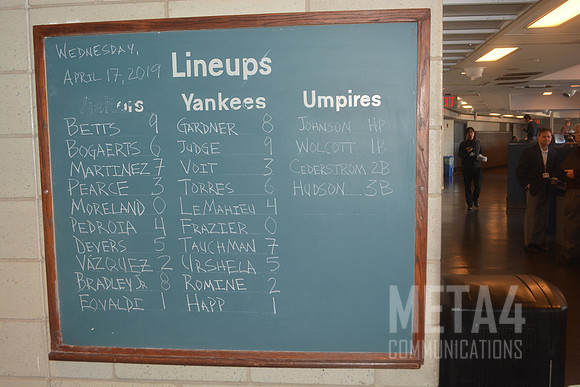 Wednesday,
April 17, 2019
Lineups
Visitors Yankees Umpires
Betts 9 Gardner 8 Johnson HP
Bogaerts 6 Judge 9 Wolcott 1B
Martinez 7 Voit 3 Cederstrom 2B
Pearce 3 Torres 6 Hudson 3B
Moreland 0 LeMahieu 4
Pedroia 4 Frazier 0
Devers 5 Tauchman 7
Vázquez 2 Urshela 5
Bradley Jr 8 Romine 2
Eovaldi 1 Happ 1
META4
COMMUNICATIONS